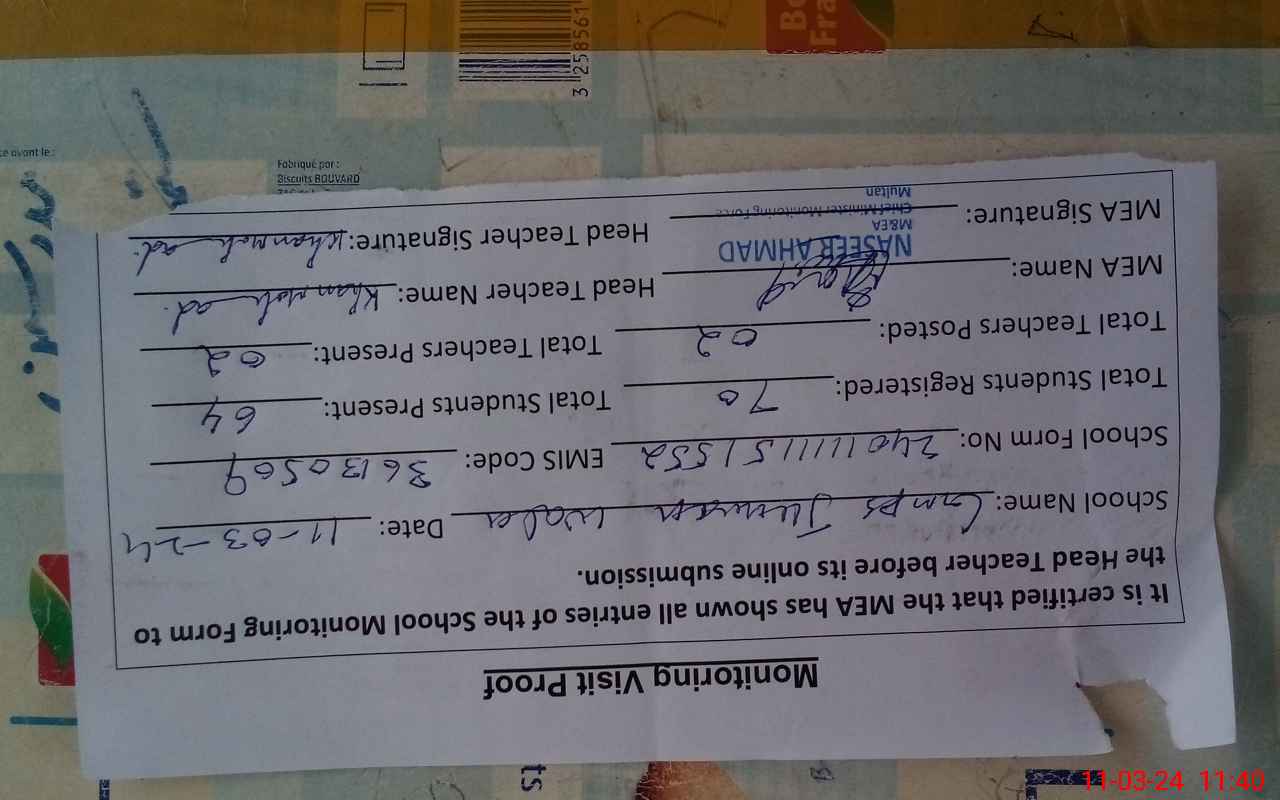 Monitoring Visit Proof
It is certified that the MEA has shown all entries of the School Monitoring Form to
the Head Teacher before its online submission.
School Name: Gmps Jumman Wala Date: 11-03-24
School Form No: 2401111151552 EMIS Code: 36130569
Total Students Registered: 70 Total Students Present: 64
Total Teachers Posted: 02 Total Teachers Present: 02
MEA Name: Head Teacher Name: Khan Moh ad.
MEA Signature: Head Teacher Signature: Khan Moh ad.
NASEER AHMAD
M&EA
Chief Minister Monitoring Force
Multan
Fabriqué par :
Biscuits BOUVARD
3 258561
ts
11-03-24 11:40